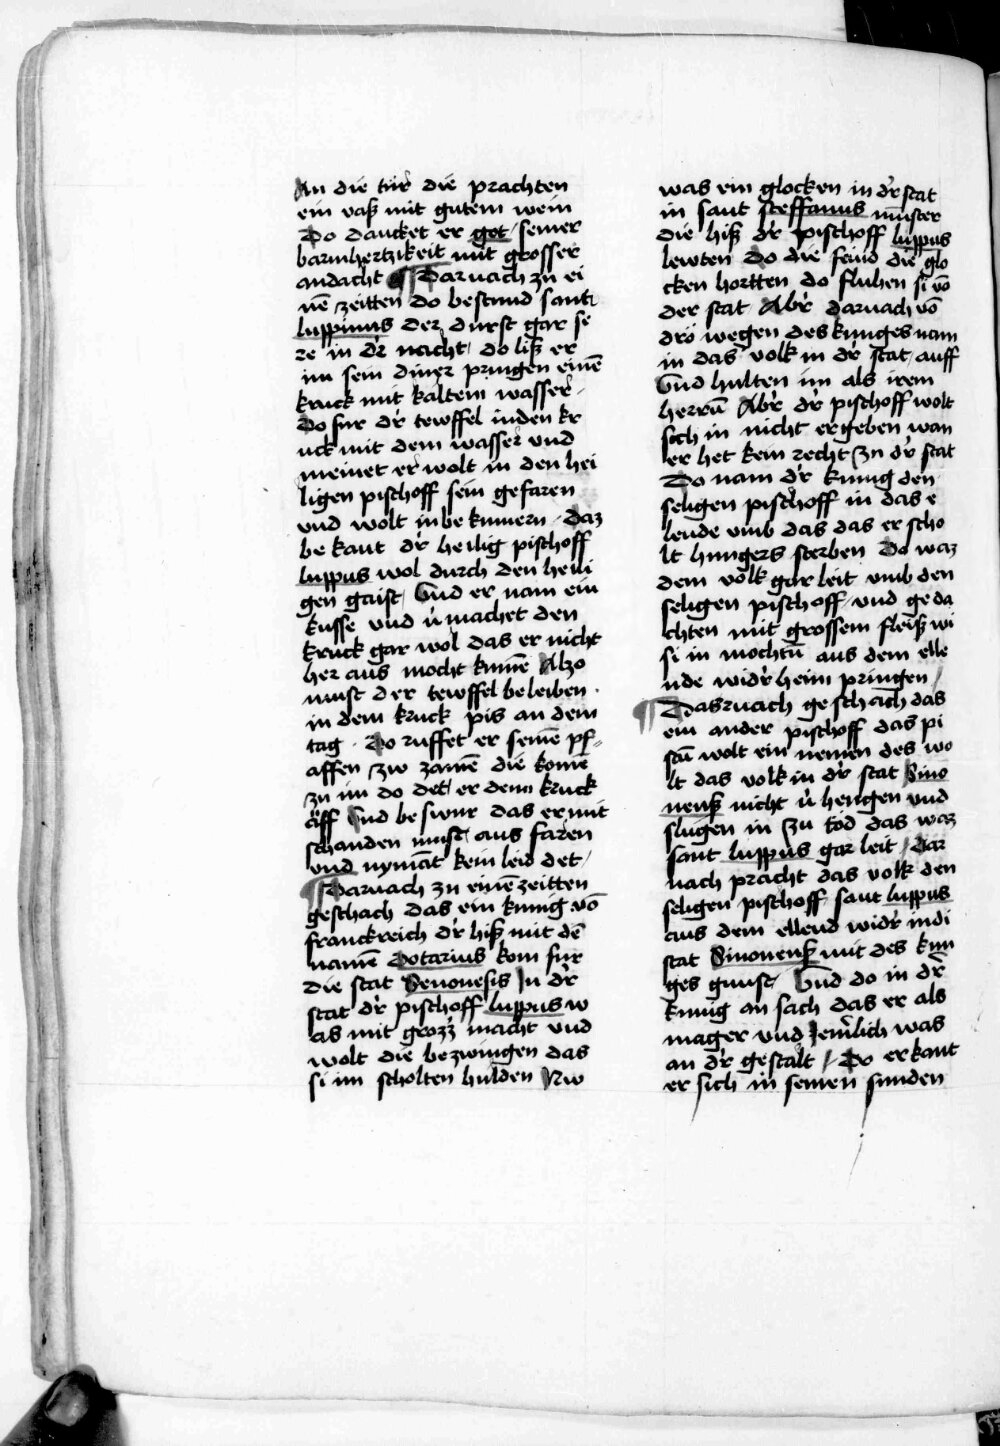 An die tür die prachten
ein vasß mit gutem wein
Do dancket er got / seiner
barmhertzikeit mit grosser
andacht ¶ Darnach zu ei
nē zeitten do bestund sant
luppinus der durst gar se
re in d'r nacht / do liß er
im sein diner pringen einē
kruck mit kaltem wasser ·
Do fur d'r tewffel in den kr
uck mit dem wasser und
meinet er wolt in den hei
ligen pischoff sein gefaren
und wolt in bekumern · Daz
bekant d'r heilig pischoff
luppus wol durch den heili
gen gaist / Und er nam ein
kusse und v'machet den
kruck gar wol das er nicht
her aus mocht kumē Alzo
must der tewffel beleiben ·
in dem kruck pis an dem
tag · Do ruffet er seinē pf=
affen zw zamē die komē
zu im do det er dem kruck
auff Und beswur das er mit
schanden must / aus faren
und nymāt kein leid det /
¶ Darnach zu einē zeitten
geschach das ein kunig vō
franckreich d'r hiß mit dē
namē Dotarius kom fur
die stat Senonesis In d'r
stat d'r pischoff luppus w
as mit grozz macht und
wolt die bezwingen das
si im scholten hulden Nw
was ein glocken in d'r stat
in sant steffanus munster
die hiß d'r pischoff luppus
lewten Do die feind die glo
cken hortten do fluhen si vō
der stat Ab'r darnach vō
dro wegen des kunges nam
in das volk in d'r stat / auff
Und hulten im als irem
herrū Ab'r d'r pischoff wolt
sich in nicht ergeben wan
er het kein recht zu d'r stat
Do nam d'r kunig den
seligen pischoff in das e
lende umb das das er scho
lt hungers sterben Do waz
dem volk gar leit umb den
seligen pischoff / und geda
chten mit grossem fleiß wi
si in mochtū aus dem elle
nde wid'r heim pringen /
¶ Dasrnach geschach das
ein ander pischoff das pi
stū wolt ein nemen des wo
lt das volk in d'r stat Sino
nenß nicht v'hengen und
slugen in zu tod das waz
sant luppus gar leit / Dar
nach pracht das volk den
seligen pischoff sant luppus
aus dem ellend wid'r in di
stat Sinonenß mit des kun
ges gunst Und do in d'r
kunig an sach das er als
mager und Jemrlich was
an d'r gestalt / Do erkant
er sich in seinen sunden